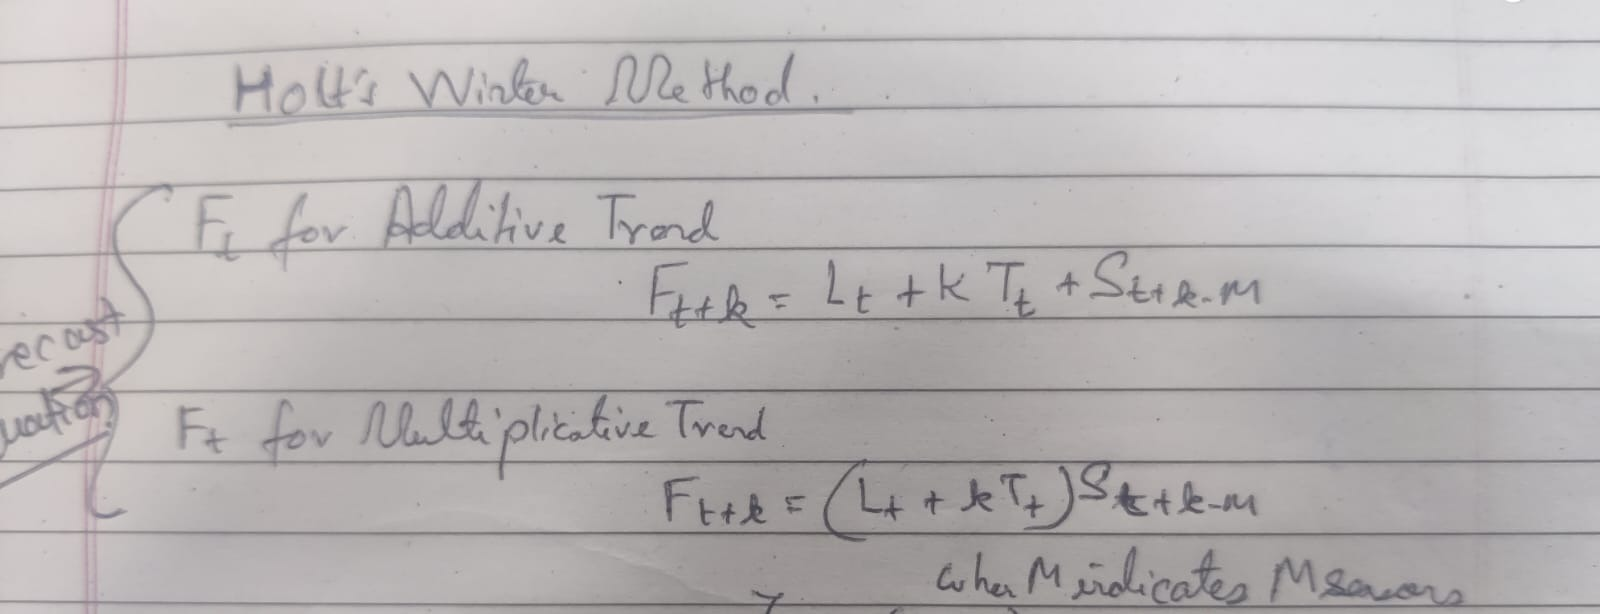 Holt's Winter Method.
F_t for Additive Trend
F_{t+k} = L_t + k T_t + S_{t+k-M}
recast
uation
F_t for Multiplicative Trend
F_{t+k} = (L_t + k T_t) S_{t+k-M}
wher M indicates M seasons